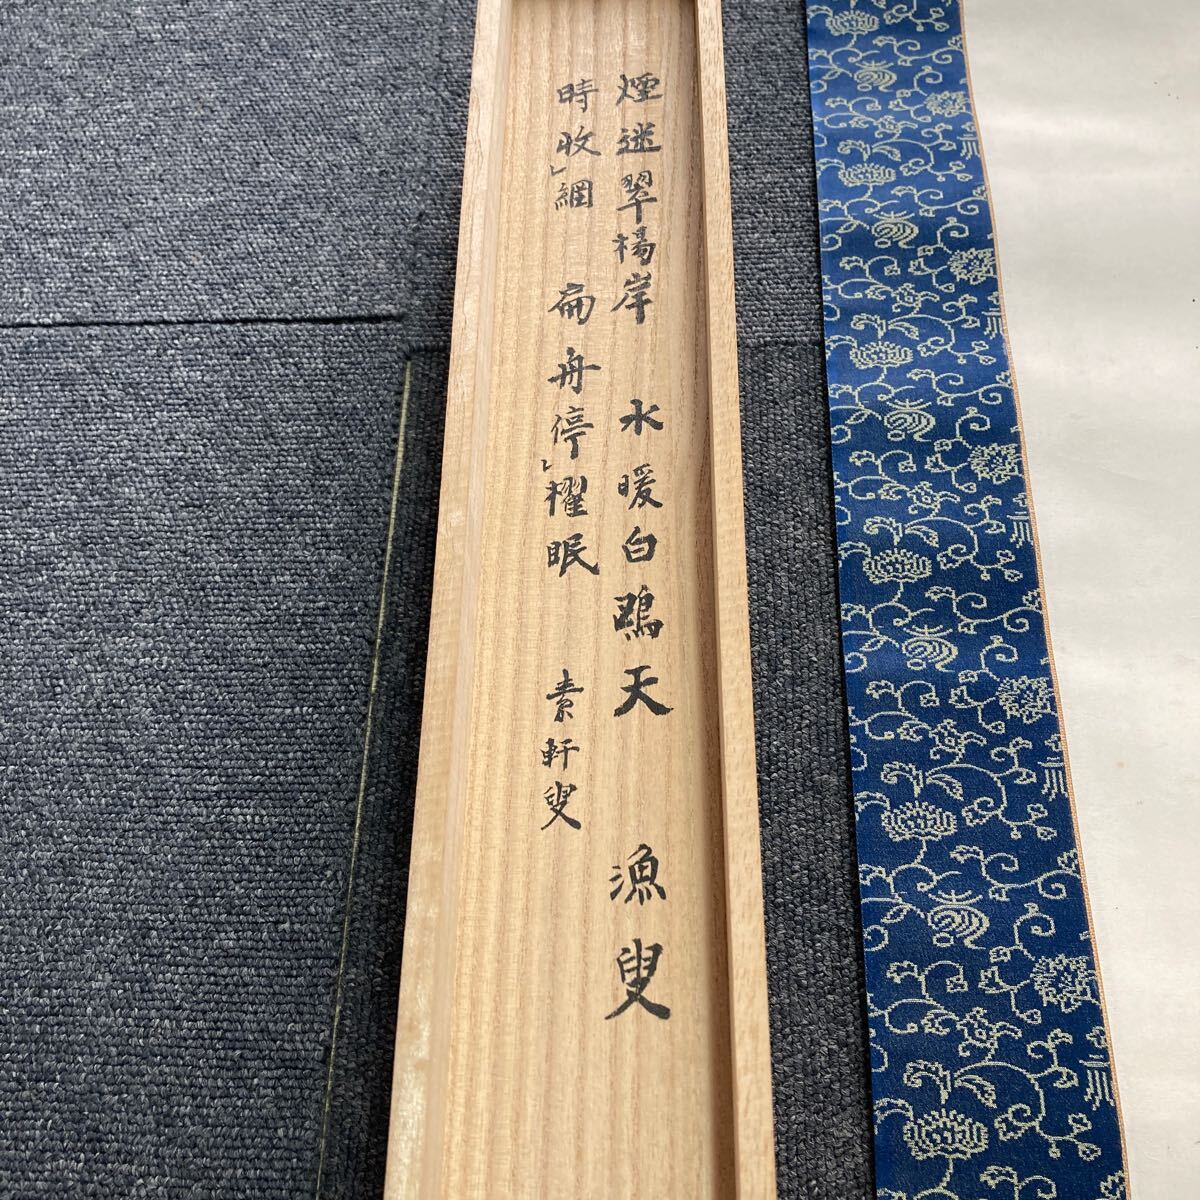 煙迷翠楊岸 水暖白鴎天 漁叟
時收網 扁舟停櫂眠 素軒叟